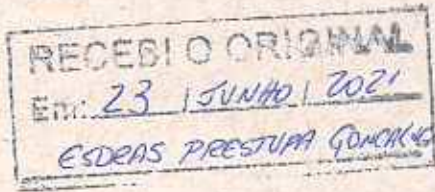 RECEBI O ORIGINAL
Em: 23 / JUNHO / 2021
ESDRAS PRESTUPA GONCALVES